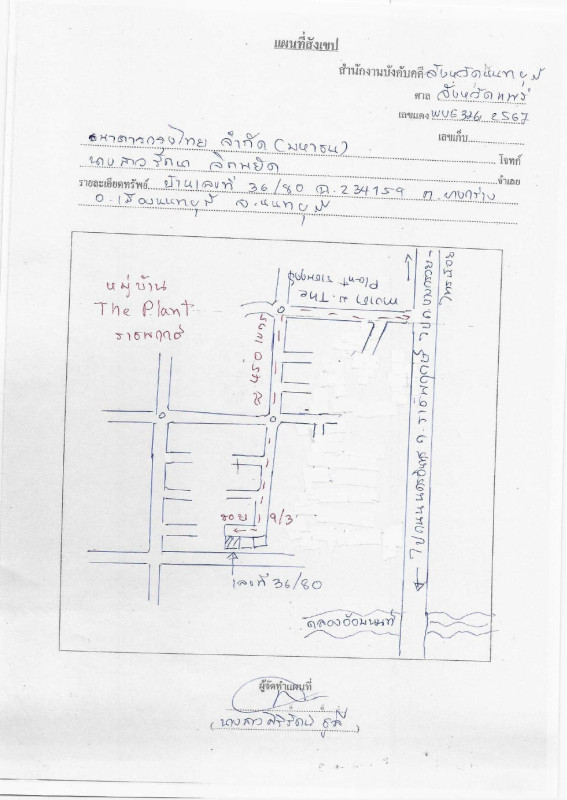 แผนที่สังเขป
สำนักงานบังคับคดี จังหวัดนนทบุรี
ศาล จังหวัดแพร่
เลขแดง ผบE376 2567
เลขเก็บ
ธนาคารกรุงไทย จำกัด (มหาชน) โจทก์
นางสาวรัตนา จำเลย
รายละเอียดทรัพย์ บ้านเลขที่ 36/80 ฉ.234159 ต.บางกร่าง
อ.เมืองนนทบุรี จ.นนทบุรี
หมู่บ้าน
The Plant
ราชพฤกษ์
หมู่บ้าน The
Plant
450 เมตร
ไปถ.บางกรวย-
ไทรน้อย
ถ.ราชพฤกษ์
ไปถนนนครอินทร์
ซอย 9/3
เลขที่ 36/80
คลองอ้อมนนท์
ผู้จัดทำแผนที่
(นางสาวศิริรัตน์)